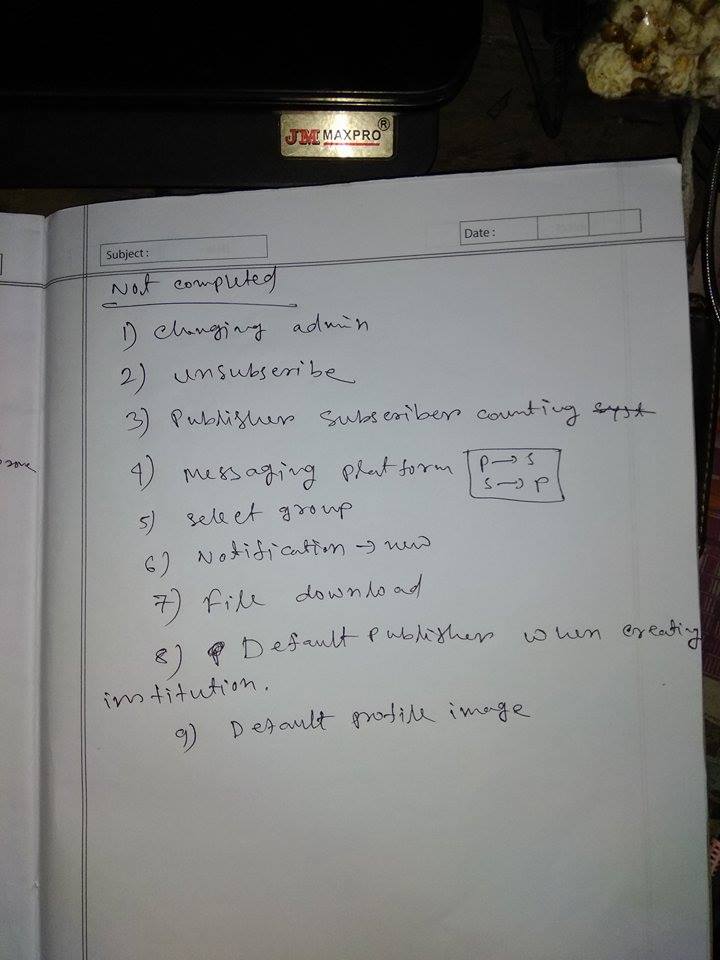 JM MAXPRO®
Subject :
Date :
Not completed
1) changing admin
2) unsubscribe
3) Publisher subscriber counting syst
4) messaging platform
P → S
S → P
5) select group
6) Notification → new
7) File download
8) Default Publisher when creating
institution.
9) Default profile image